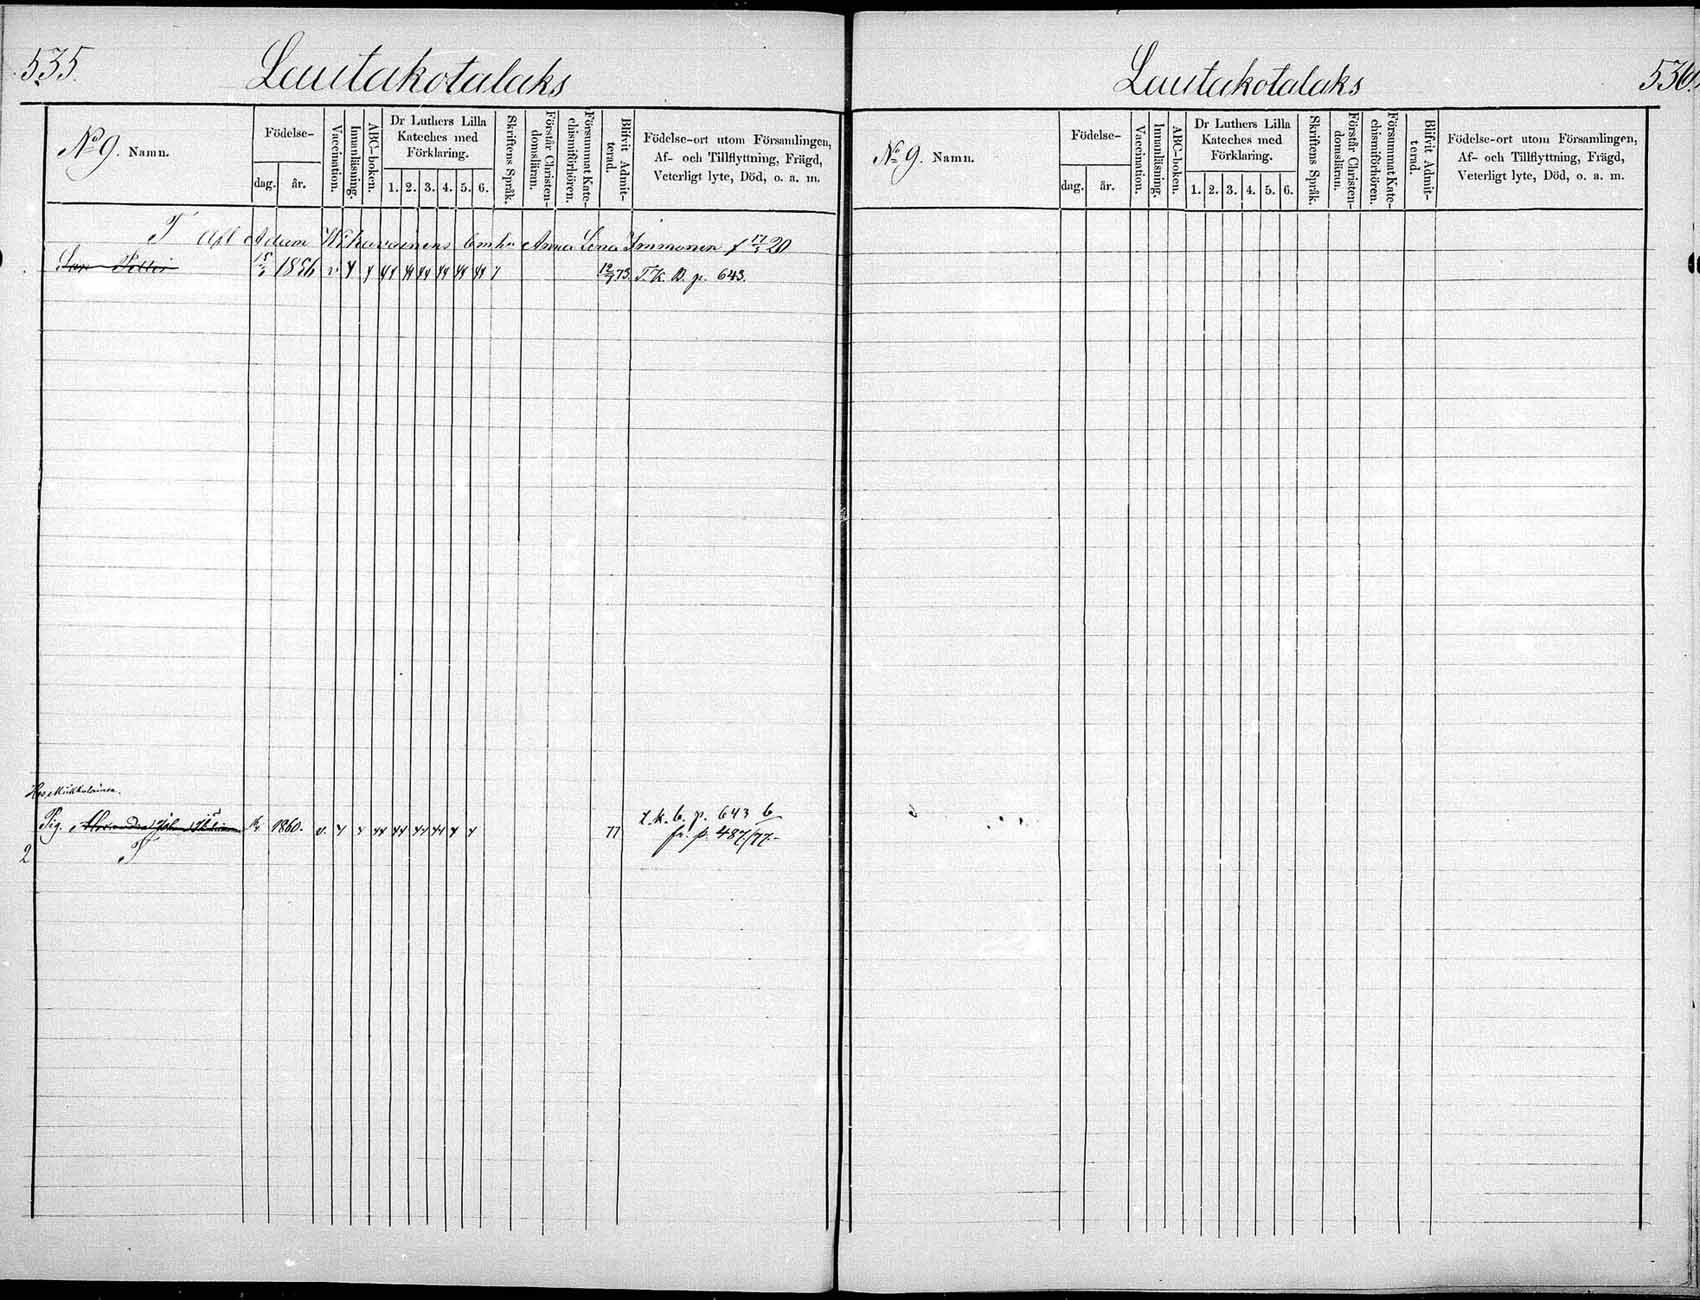 535.
Lautakotalaks
No 9. Namn.
Födelse-
dag. år.
Vaccination.
Innanläsning.
ABC-boken.
Dr Luthers Lilla
Kateches med
Förklaring.
1. 2. 3. 4. 5. 6.
Skriftens Språk.
Förstår Christen-
domsläran.
Försummat Kate-
chismiförhören.
Blifvit Admit-
terad.
Födelse-ort utom Församlingen,
Af- och Tillflyttning, Frägd,
Veterligt lyte, Död, o. a. m.
Adam Anna Lena Immonen 20
Son Petter 15 1856 v 73. T. K. B. p. 643.
Hos Mikkolainen.
Pig. 1860. v. 77 t. k. b. p. 643 b
fr. p. 487/77.
2
Lautakotalaks
536.
No 9. Namn.
Födelse-
dag. år.
Vaccination.
Innanläsning.
ABC-boken.
Dr Luthers Lilla
Kateches med
Förklaring.
1. 2. 3. 4. 5. 6.
Skriftens Språk.
Förstår Christen-
domsläran.
Försummat Kate-
chismiförhören.
Blifvit Admit-
terad.
Födelse-ort utom Församlingen,
Af- och Tillflyttning, Frägd,
Veterligt lyte, Död, o. a. m.